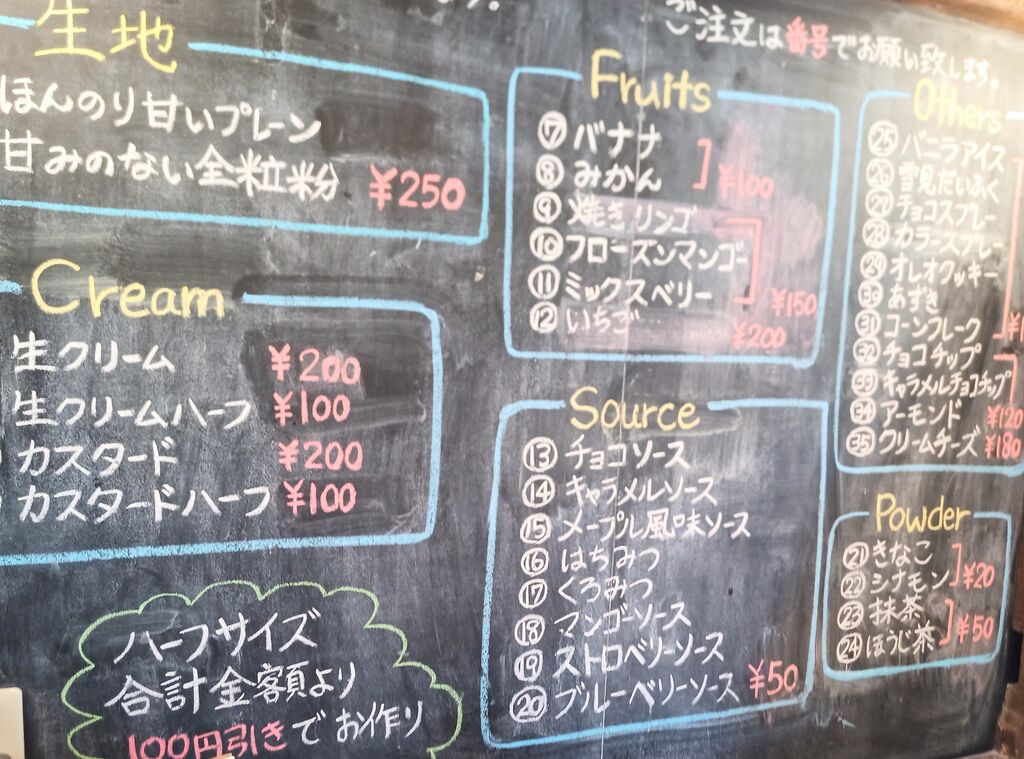 生地
ほんのり甘いプレーン
甘みのない全粒粉 ¥250
Cream
生クリーム ¥200
生クリームハーフ ¥100
カスタード ¥200
カスタードハーフ ¥100
ハーフサイズ
合計金額より
100円引きでお作り
ご注文は番号でお願い致します。
Fruits
⑦バナナ
⑧みかん ¥100
⑨焼きリンゴ
⑩フローズンマンゴー
⑪ミックスベリー ¥150
⑫いちご ¥200
Source
⑬チョコソース
⑭キャラメルソース
⑮メープル風味ソース
⑯はちみつ
⑰くろみつ
⑱マンゴーソース
⑲ストロベリーソース
⑳ブルーベリーソース ¥50
Others
㉕バニラアイス
㉖雪見だいふく
㉗チョコスプレー
㉘カラースプレー
㉙オレオクッキー
㉚あずき
㉛コーンフレーク
㉜チョコチップ
㉝キャラメルチョコチップ
㉞アーモンド ¥120
㉟クリームチーズ ¥180
Powder
㉑きなこ
㉒シナモン ¥20
㉓抹茶
㉔ほうじ茶 ¥50